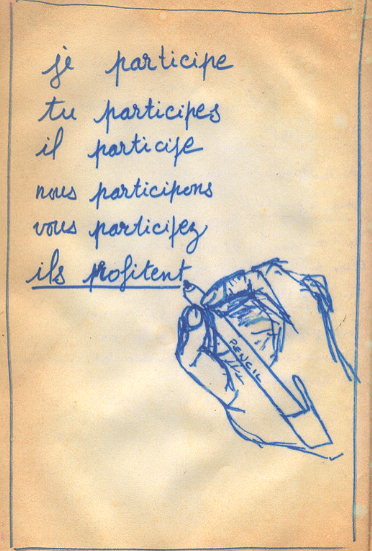 je participe
tu participes
il participe
nous participons
vous participez
ils profitent
PENCIL